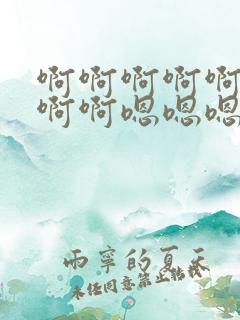 啊啊啊啊啊
啊啊嗯嗯嗯
雨寧的夏天
未经同意禁止转载